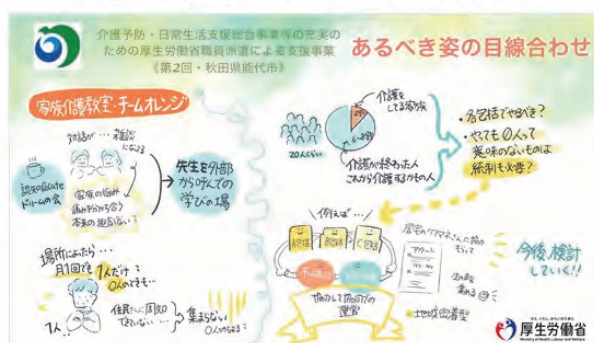 介護予防・日常生活支援総合事業等の充実の
ための厚生労働省職員派遣による支援事業
《第2回・秋田県能代市》
あるべき姿の目線合わせ
家族介護教室・チームオレンジ
対話が…雑談
になる
ドリームの会
家族の悩み
痛みを分かち合う
本来の趣旨ない?
先生を外部
から呼んでの
学びの場
場所によったら…
月1回でも1人だけ?
0人のときも…
1人
住民さんに周知
できていない…
集まらない
0人もある?
20人くらい
介護を
してる家族
介護が終わった人
これから介護するかも人
・各包括でやるべき?
・やっても0人って
意味のないものは
統制も必要?
例えば…
A包括
B包括
C包括
協力して協働での
運営
居宅のケアマネさんに協力
もらって
アンケート
生の声を
集める
地域密着型
今後、検討
していく!!
ひと、くらし、みらいのために
厚生労働省
Ministry of Health, Labour and Welfare